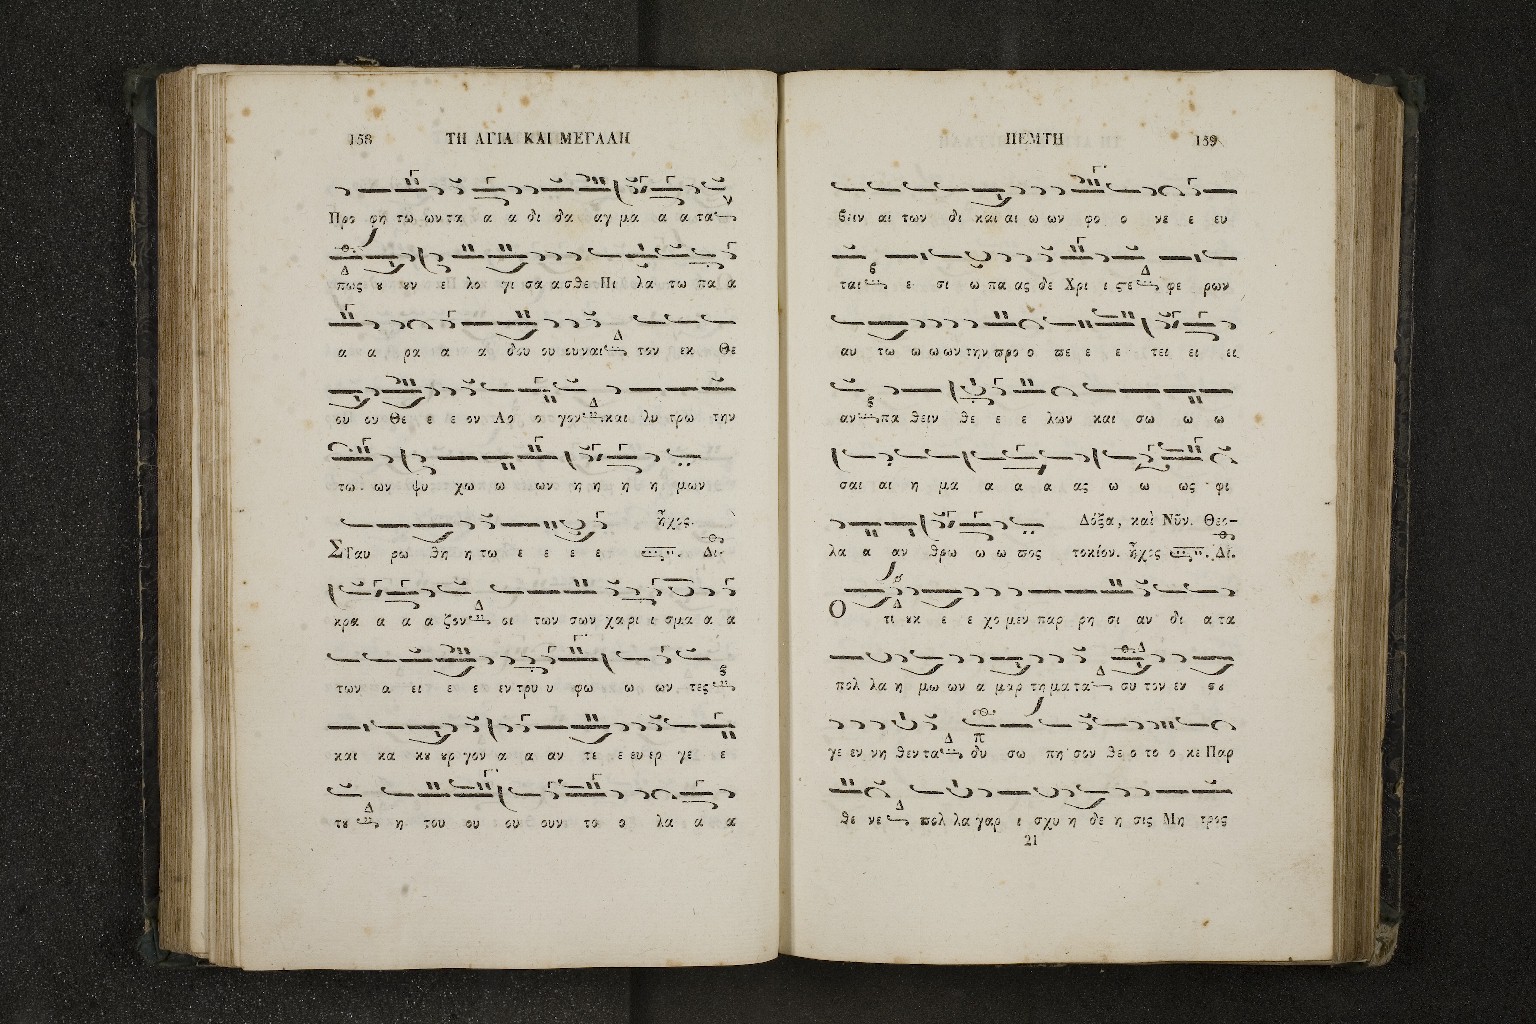 158 ΤΗ ΑΓΙΑ ΚΑΙ ΜΕΓΑΛΗ
Προ φη τω ων τα α α δι δα αγ μα α α τα
πως ȣ ȣν ε λο γι σα α σθε Πι λα τω πα α
α α ρα α α δου ου ου ναι τον εκ Θε
ου ου Θε ε ε ον Λο ο γον και λυ τρω την
τω ων ψυ χω ω ων η η η η μων
ἦχος
Σταυ ρω θη η τω ε ε ε ε Δι.
κρα α α α ζον οι των σων χα ρι ι σμα α α
των α ει ε ε εν τρυ υ φω ω ων τες
και κα κȣ ȣρ γον α α αν τε ε ευ ερ γε ε
τȣ η του ου ου ουν το ο λα α α
ΠΕΜΤΗ 159
βειν αι των δι και αι ω ων φο ο νε ε ευ
ται ε σι ω πα ας δε Χρι ι ϛε φε ρων
αυ τω ω ω ων την προ ο πε ε ε τει ει ει
αν πα θειν θε ε ε λων και σω ω ω
σαι αι η μα α α α ας ω ω ως φι
Δόξα, καὶ Νῦν. Θεο-
λα α αν θρω ω ω πος τοκίον. ἦχος Δι.
Ο τι ȣκ ε ε χο μεν παρ ρη σι αν δι α τα
πολ λα η μω ων α μαρ τη μα τα συ τον εν σȣ
γε εν νη θεν τα δυ σω πη σον θε ο το ο κε Παρ
θε νε πολ λα γαρ ι σχυ η δε η σις Μη τρος
21